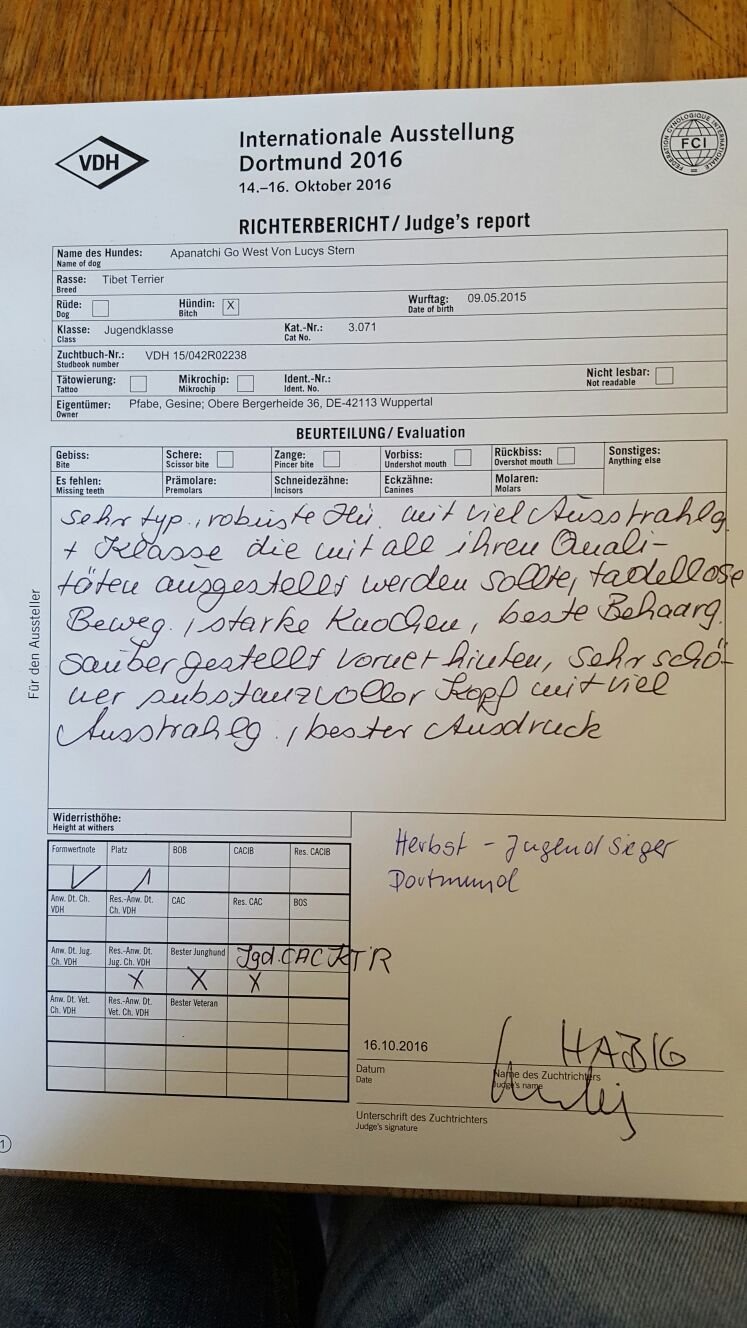 VDH
Internationale Ausstellung
Dortmund 2016
14.–16. Oktober 2016
FEDERATION CYNOLOGIQUE INTERNATIONALE
FCI
RICHTERBERICHT / Judge's report
Name des Hundes: Apanatchi Go West Von Lucys Stern
Name of dog
Rasse: Tibet Terrier
Breed
Rüde: Hündin: X Wurftag: 09.05.2015
Dog Bitch Date of birth
Klasse: Jugendklasse Kat.-Nr.: 3.071
Class Cat No.
Zuchtbuch-Nr.: VDH 15/042R02238
Studbook number
Tätowierung: Mikrochip: Ident.-Nr.: Nicht lesbar:
Tattoo Mikrochip Ident. No. Not readable
Eigentümer: Pfabe, Gesine; Obere Bergerheide 36, DE-42113 Wuppertal
Owner
BEURTEILUNG / Evaluation
Gebiss: Schere: Zange: Vorbiss: Rückbiss: Sonstiges:
Bite Scissor bite Pincer bite Undershot mouth Overshot mouth Anything else
Es fehlen: Prämolare: Schneidezähne: Eckzähne: Molaren:
Missing teeth Premolars Incisors Canines Molars
sehr typ., robuste Hü. mit viel Ausstrahlg.
+ Klasse die mit all ihren Quali-
täten ausgestellt werden sollte, tadellose
Beweg., starke Knochen, beste Behaarg.
sauber gestellt vorne + hinten, sehr schö-
ner substanzvoller Kopf mit viel
Ausstrahlg., bester Ausdruck
Für den Aussteller
Widerristhöhe:
Height at withers
Formwertnote Platz BOB CACIB Res. CACIB
V 1
Anw. Dt. Ch. Res.-Anw. Dt. CAC Res. CAC BOS
VDH Ch. VDH
Anw. Dt. Jug. Res.-Anw. Dt. Bester Junghund Jgd. CAC KTR
Ch. VDH Jug. Ch. VDH
X X X
Anw. Dt. Vet. Res.-Anw. Dt. Bester Veteran
Ch. VDH Vet. Ch. VDH
Herbst - Jugendsieger
Dortmund
16.10.2016 HABIG
Datum Name des Zuchtrichters
Date Judge's name
Unterschrift des Zuchtrichters
Judge's signature
1